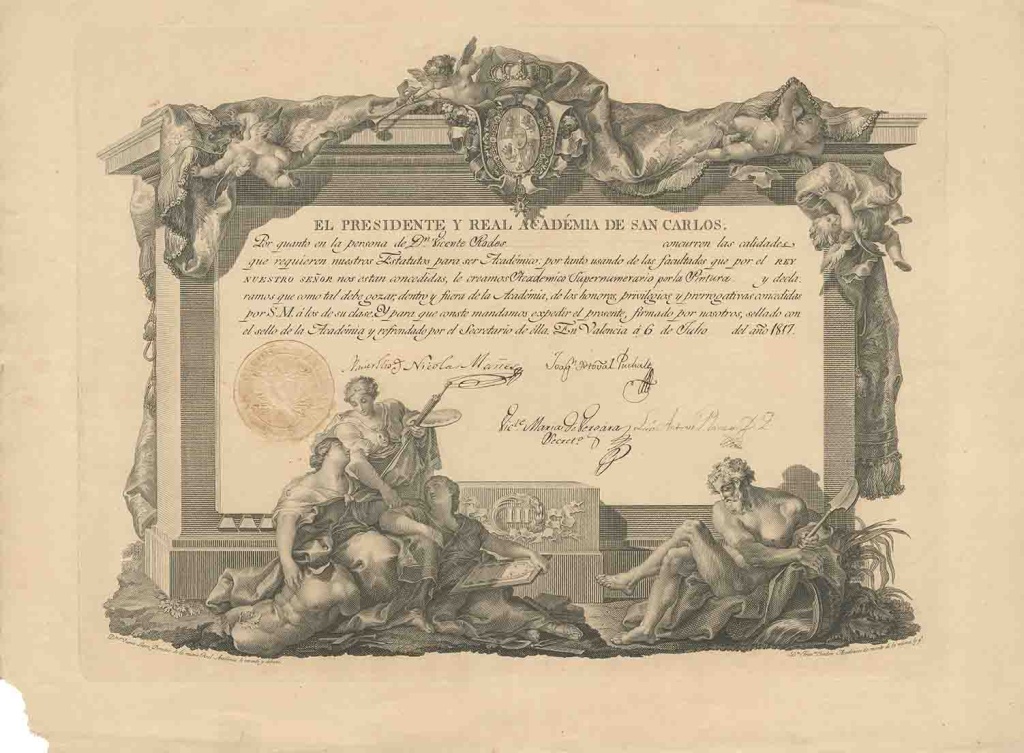 EL PRESIDENTE Y REAL ACADÉMIA DE SAN CARLOS.
Por quanto en la persona de Dn. Vicente Rodes concurren las calidades
que requieren nuestros Estatutos para ser Académico: por tanto usando de las facultades que por el REY
NUESTRO SEÑOR nos estan concedidas, le creamos Académico Supernumerario por la Pintura y decla-
ramos que como tal debe gozar, dentro y fuera de la Académia, de los honores, privilegios y prerrogativas concedidas
por S.M. á los de su clase. Y para que conste mandamos expedir el presente, firmado por nosotros, sellado con
el sello de la Académia y refrendado por el Secretario de élla. En Valencia á 6 de Julio del año 1817.
Nicolas Mañez
Victe. Maria de Vergara
Secreto.